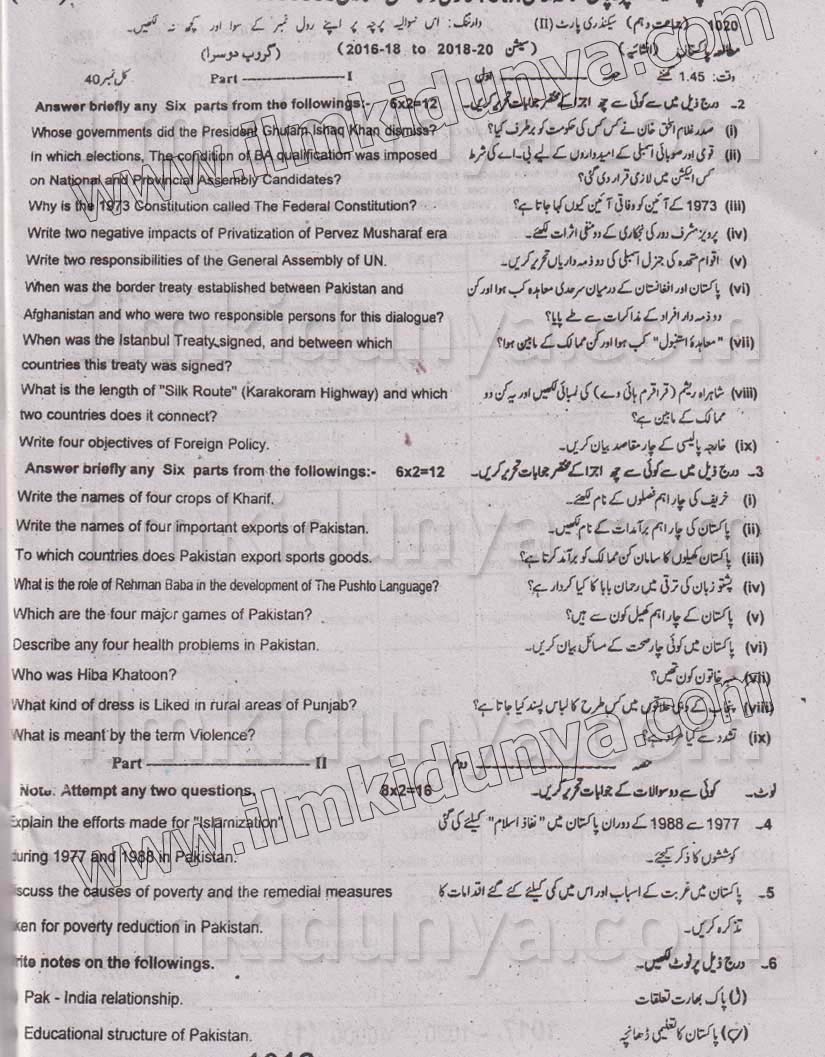 1020 (جماعت دہم) سیکنڈری پارٹ (II) وارننگ: اس سوالیہ پرچہ پر اپنے رول نمبر کے سوا اور کچھ نہ لکھیں۔
مطالعہ پاکستان (انشائیہ) (سیشن 2016-18 to 2018-20) (گروپ دوسرا)
وقت: 1.45 گھنٹے حصہ اوّل Part I کل نمبر 40
Answer briefly any Six parts from the followings:- 6x2=12 2۔ درج ذیل میں سے کوئی سے چھ اجزا کے مختصر جوابات تحریر کریں۔
Whose governments did the President Ghulam Ishaq Khan dismiss? (i) صدر غلام اسحٰق خان نے کس کس کی حکومت کو برطرف کیا؟
In which elections, The condition of BA qualification was imposed (ii) قومی اور صوبائی اسمبلی کے امیدواروں کے لیے بی۔اے کی شرط
on National and Provincial Assembly Candidates? کس الیکشن میں لازمی قرار دی گئی؟
Why is the 1973 Constitution called The Federal Constitution? (iii) 1973 کے آئین کو وفاقی آئین کیوں کہا جاتا ہے؟
Write two negative impacts of Privatization of Pervez Musharaf era (iv) پرویز مشرف دور کی نجکاری کے دو منفی اثرات لکھئے۔
Write two responsibilities of the General Assembly of UN. (v) اقوام متحدہ کی جنرل اسمبلی کی دو ذمہ داریاں تحریر کریں۔
When was the border treaty established between Pakistan and (vi) پاکستان اور افغانستان کے درمیان سرحدی معاہدہ کب ہوا اور کن
Afghanistan and who were two responsible persons for this dialogue? دو ذمہ دار افراد کے مذاکرات سے طے پایا؟
When was the Istanbul Treaty signed, and between which (vii) "معاہدۂ استنبول" کب ہوا اور کن ممالک کے مابین ہوا؟
countries this treaty was signed?
What is the length of "Silk Route" (Karakoram Highway) and which (viii) شاہراہ ریشم (قراقرم ہائی وے) کی لمبائی لکھیں اور یہ کن دو
two countries does it connect? ممالک کے مابین ہے؟
Write four objectives of Foreign Policy. (ix) خارجہ پالیسی کے چار مقاصد بیان کریں۔
Answer briefly any Six parts from the followings:- 6x2=12 3۔ درج ذیل میں سے کوئی سے چھ اجزا کے مختصر جوابات تحریر کریں۔
Write the names of four crops of Kharif. (i) خریف کی چار اہم فصلوں کے نام لکھئے۔
Write the names of four important exports of Pakistan. (ii) پاکستان کی چار اہم برآمدات کے نام لکھیں۔
To which countries does Pakistan export sports goods. (iii) پاکستان کھیلوں کا سامان کن ممالک کو برآمد کرتا ہے؟
What is the role of Rehman Baba in the development of The Pushto Language? (iv) پشتو زبان کی ترقی میں رحمان بابا کا کیا کردار ہے؟
Which are the four major games of Pakistan? (v) پاکستان کے چار اہم کھیل کون سے ہیں؟
Describe any four health problems in Pakistan. (vi) پاکستان میں کوئی چار صحت کے مسائل بیان کریں۔
Who was Hiba Khatoon? (vii) خاتون کون تھیں؟
What kind of dress is Liked in rural areas of Punjab? (viii) پنجاب کے دیہی علاقوں میں کس طرح کا لباس پسند کیا جاتا ہے؟
What is meant by the term Violence? (ix) تشدد سے کیا مراد ہے؟
Part II حصہ دوم
Note. Attempt any two questions. 8x2=16 نوٹ۔ کوئی سے دو سوالات کے جوابات تحریر کریں۔
Explain the efforts made for "Islamization" 4۔ 1977 سے 1988 کے دوران پاکستان میں "نفاذ اسلام" کیلئے کی گئی
during 1977 and 1988 in Pakistan. کوششوں کا ذکر کیجئے۔
iscuss the causes of poverty and the remedial measures 5۔ پاکستان میں غربت کے اسباب اور اس میں کمی کیلئے کئے گئے اقدامات کا
ken for poverty reduction in Pakistan. تذکرہ کریں۔
rite notes on the followings. 6۔ درج ذیل پر نوٹ لکھیں۔
) Pak - India relationship. (ا) پاک بھارت تعلقات
) Educational structure of Pakistan. (ب) پاکستان کا تعلیمی ڈھانچہ
www.ilmkidunya.com
ilmkidunya.com
www.ilmkidunya.com
ilmkidunya.com
www.ilmkidunya.com
ilmkidunya.com